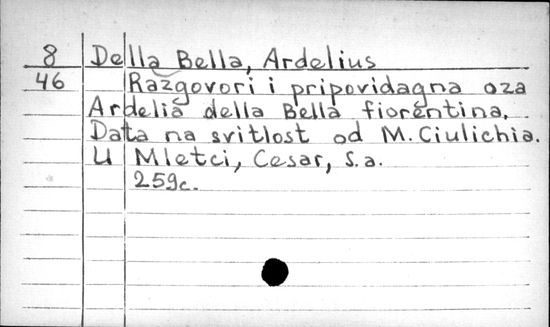 8 Della Bella, Ardelius
46 Razgovori i pripovidagna oza
Ardelia della Bella fiorentina.
Data na svitlost od M. Ciulichia.
U Mletci, Cesar, s.a.
259c.